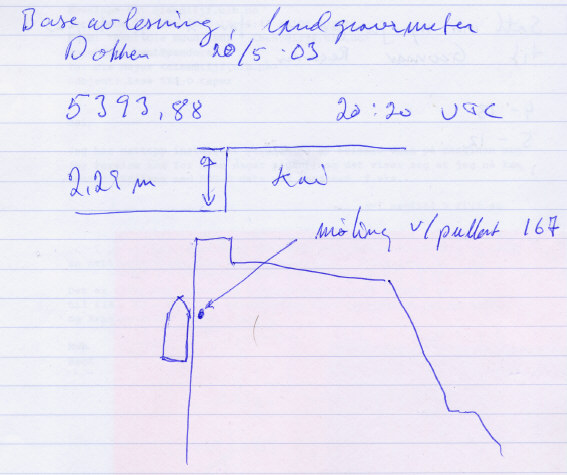 Base avlesning, landgravimeter
Dokken 20/5 -03
5393,88 20:20 UTC
2,29 m
Kai
måling v/pullert 167